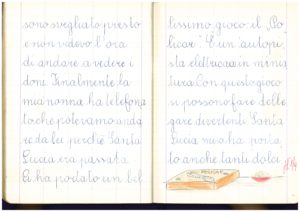 sono svegliato presto
e non vedevo l'ora
di andare a vedere i
doni. Finalmente la
mia nonna ha telefona
to che potevamo anda
re da lei perché Santa
Lucia era passata.
Ci ha portato un bel
lissimo gioco: il "Po
licar". È un autopi
sta elettrica in minia
tura. Con questo gioco
si possono fare delle
gare divertenti. Santa
Lucia mi ha porta
to anche tanti dolci.